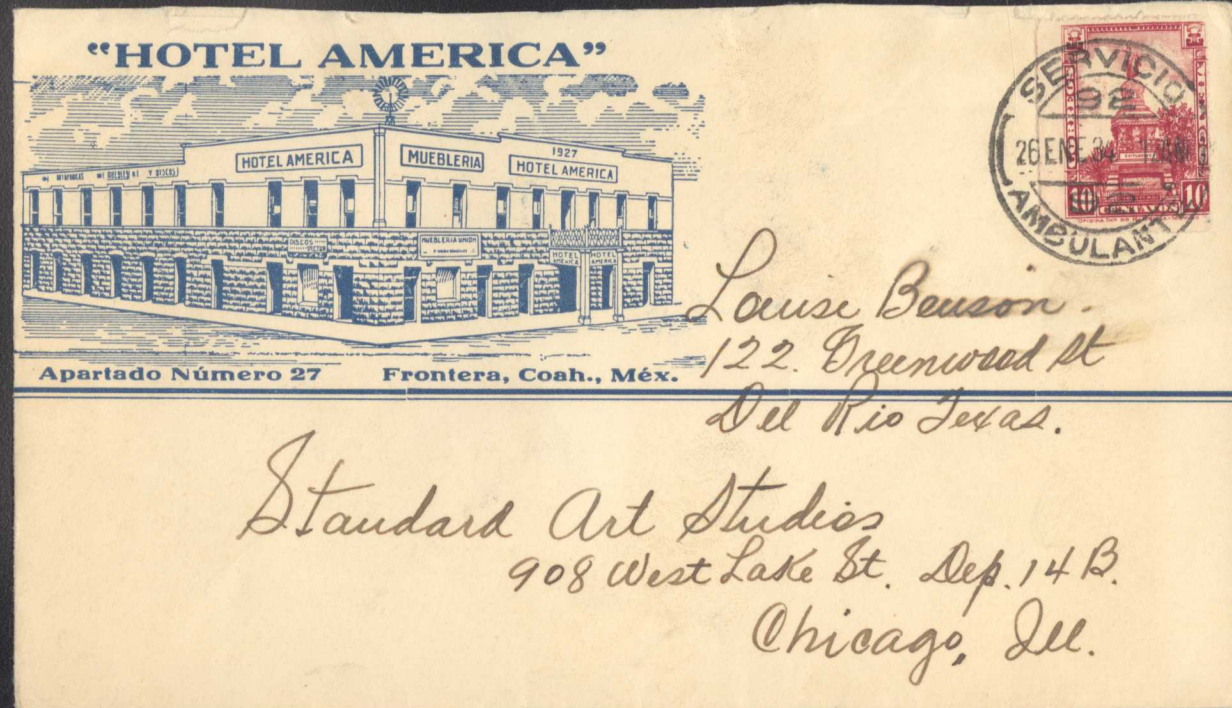 “HOTEL AMERICA”
HOTEL AMERICA
MUEBLERIA
1927
HOTEL AMERICA
MUEBLES Y DISCOS
DISCOS
VICTOR
MUEBLERIA UNION
HOTEL AMERICA
HOTEL AMERICA
Apartado Número 27 Frontera, Coah., Méx.
SERVICIO
92
26 ENE 34
AMBULANTE
10 CENTAVOS 10
Louise Benson.
122. Greenwood St
Del Rio Texas.
Standard Art Studios
908 West Lake St. Dep. 14 B.
Chicago, Ill.